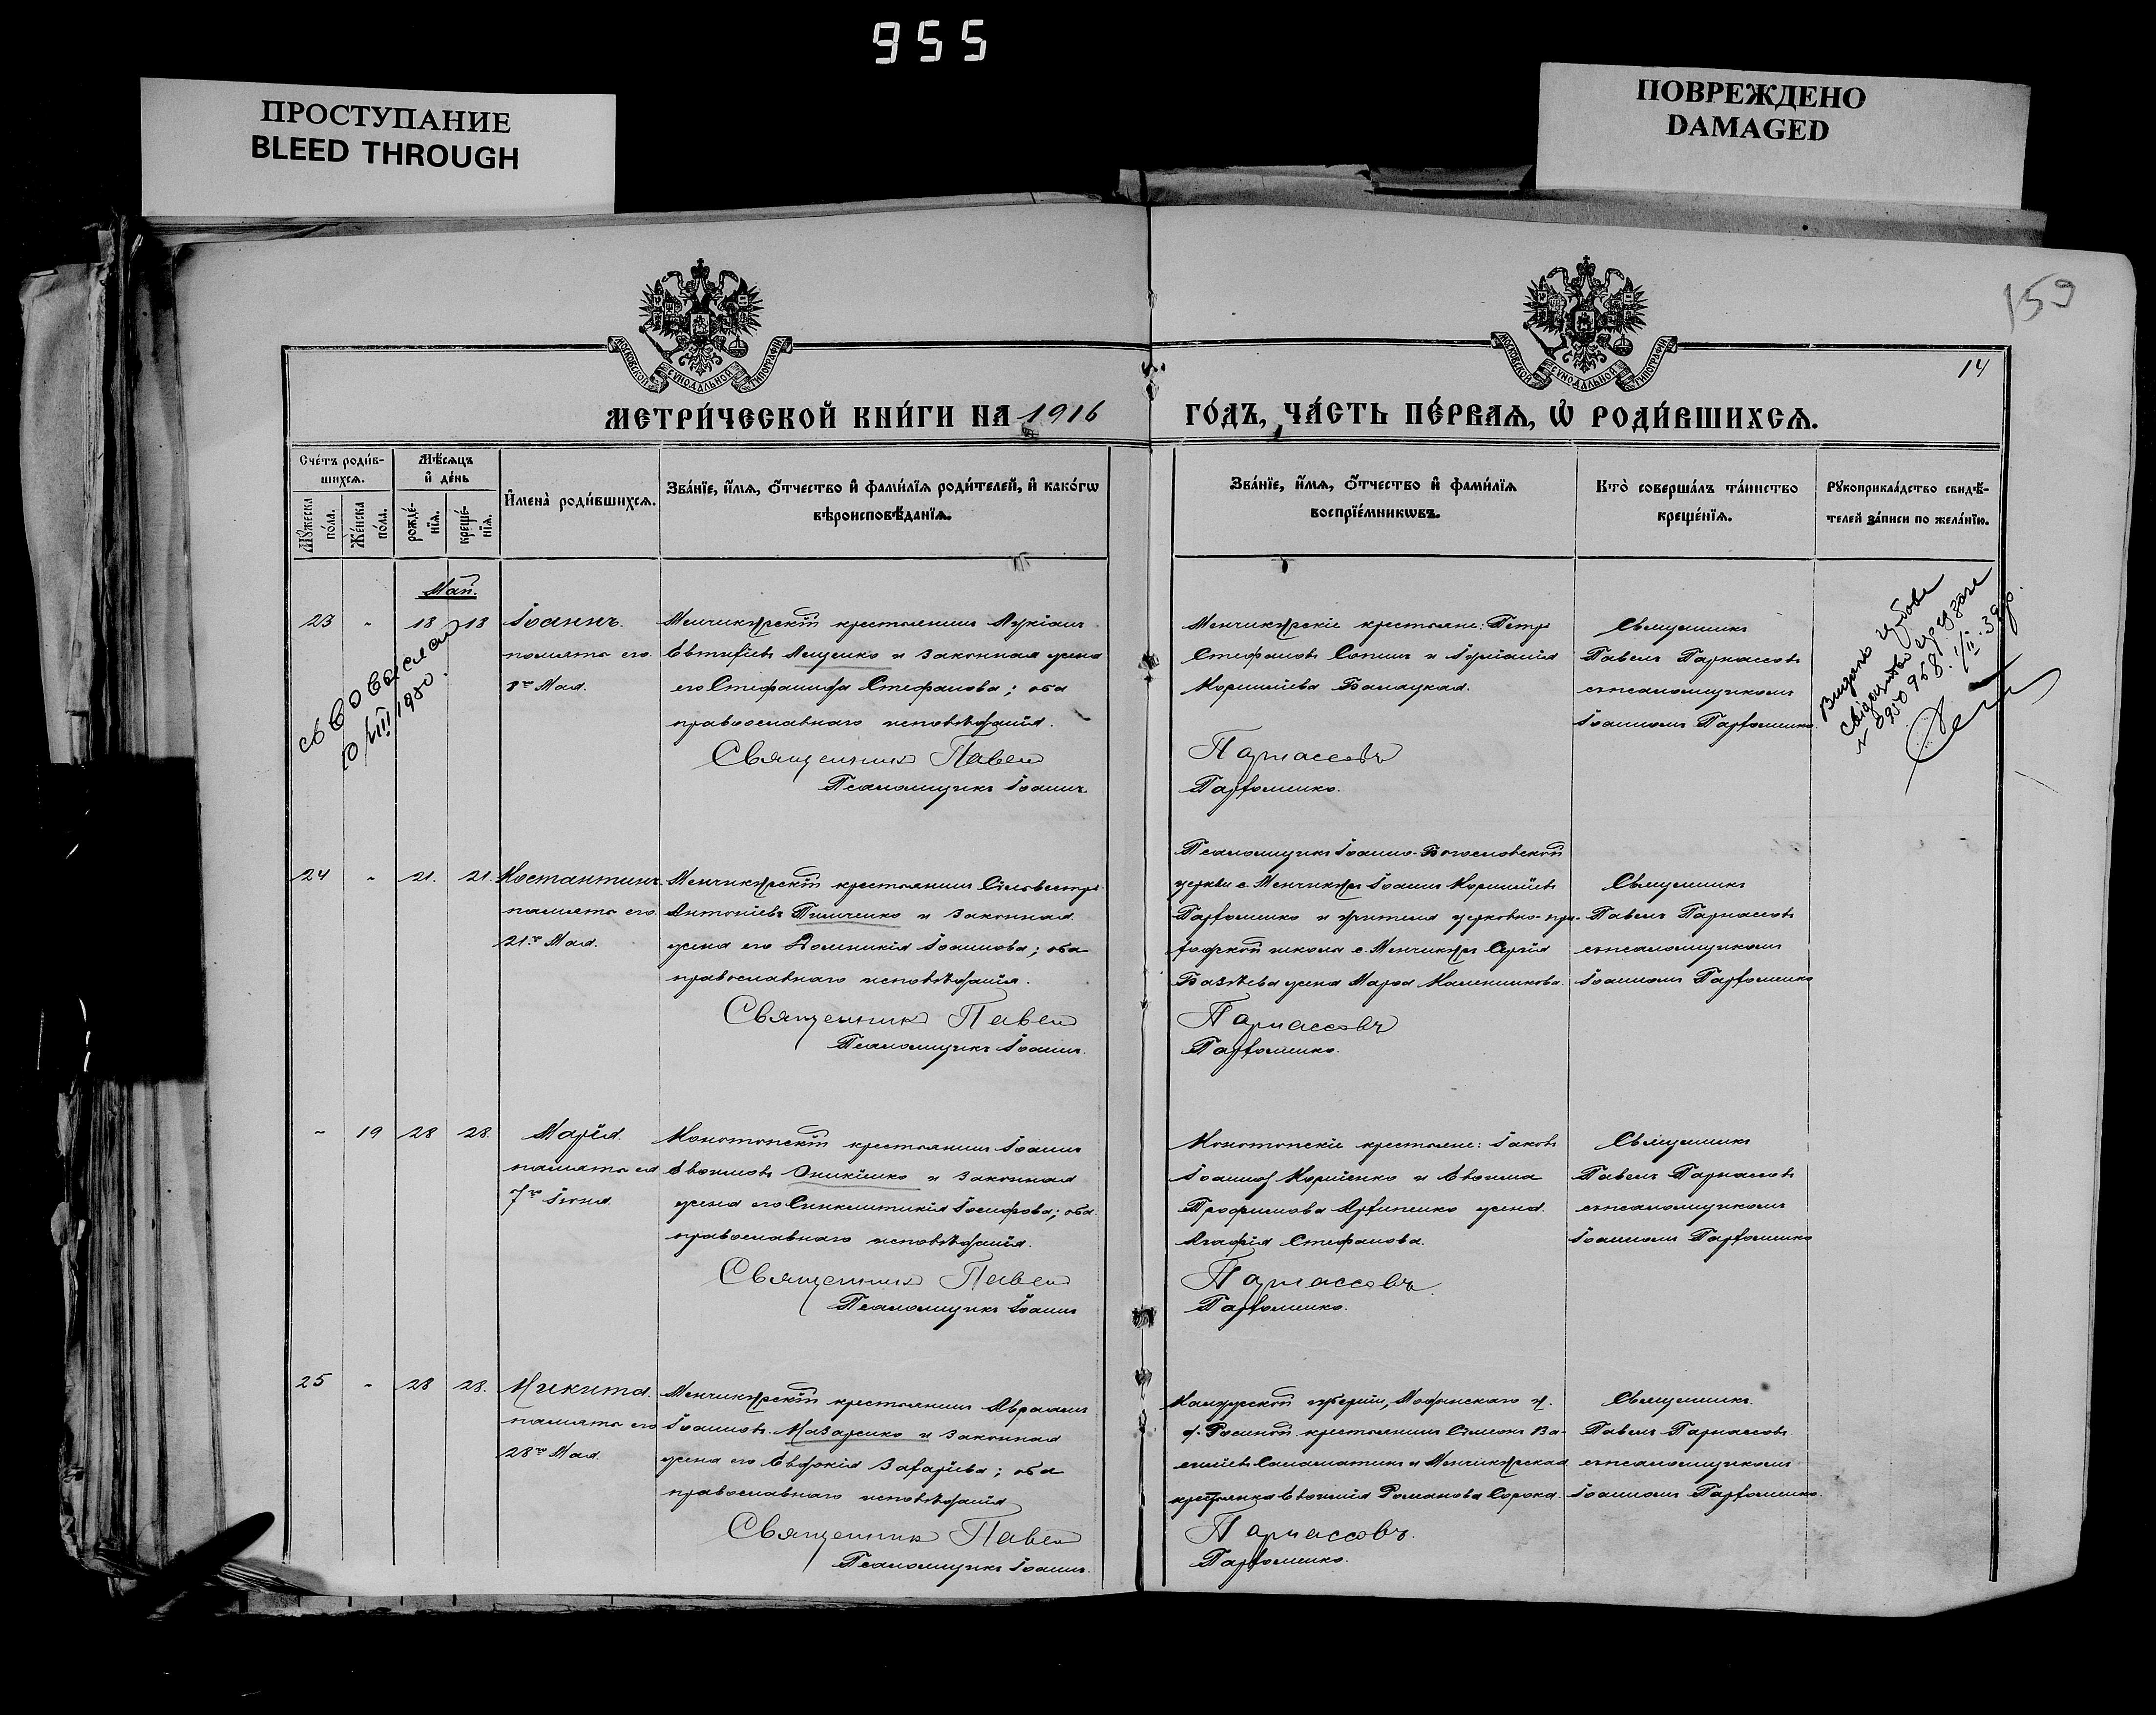 955
ПРОСТУПАНИЕ
BLEED THROUGH
ПОВРЕЖДЕНО
DAMAGED
159
14
МОСКОВСКОЙ СѴНОДАЛЬНОЙ ТИПОГРАФІИ
МОСКОВСКОЙ СѴНОДАЛЬНОЙ ТИПОГРАФІИ
МЕТРИ́ЧЕСКОЙ КНИ́ГИ НА 1916
ГО́ДЪ, ЧА́СТЬ ПЕ́РВАѦ, Ѡ҆ РОДИ́ВШИХСѦ.
Сче́тъ роди́в-
шихсѧ.
Мꙋ́жеска по́ла.
Же́нска по́ла.
Мѣ́сѧцъ
и҆ де́нь
рожде́-
нїѧ.
креще́-
нїѧ.
И҆мена̀ роди́вшихсѧ.
Зва́нїе, и҆́мѧ, ѻ҆́тчество и҆ фами́лїѧ роди́телей, и҆ како́гѡ
вѣроисповѣ́данїѧ.
Зва́нїе, и҆́мѧ, ѻ҆́тчество и҆ фами́лїѧ
воспрїе́мникѡвъ.
Кто̀ соверша́лъ та́инство
креще́нїѧ.
Рꙋкоприкла́дство свидѣ́-
телей за́писи по жела́нїю.
Май.
23 - 18 18 Іоаннъ.
память его
8го Мая.
Менчикурскій крестьянинъ Лукіанъ
Евтихіевъ Лещенко и законная жена
его Стефанида Стефанова; оба
православнаго исповѣданія.
Священникъ Павелъ
Псаломщикъ Іоаннъ
Менчикурскіе крестьяне: Петръ
Стефановъ Сопинъ и Іуліанія
Корниліева Балацкая.
Парнассовъ
Пархоменко.
Священникъ
Павелъ Парнассовъ
съ псаломщикомъ
Іоанномъ Пархоменко.
Видано
свідоцтво
№ 0950968. 1/II. 39 р.
1980.
24 - 21. 21. Костантинъ
память его
21го Мая.
Менчикурскій крестьянинъ Сілвестръ
Антоніевъ Тимченко и законная
жена его Домникія Іоаннова; оба
православнаго исповѣданія.
Священникъ Павелъ
Псаломщикъ Іоаннъ.
Псаломщикъ Іоанно-Богословской
церкви с. Менчикуръ Іоаннъ Корниліевъ
Пархоменко и учителя церковно-при-
ходской школы с. Менчикуръ Сергія
жена Марѳа
Парнассовъ
Пархоменко.
Священникъ
Павелъ Парнассовъ
съ псаломщикомъ
Іоанномъ Пархоменко
- 19 28 28. Марія.
память ея
7го Іюня.
Конотопскій крестьянинъ Іоаннъ
Евѳимовъ Оникіенко и законная
жена его Синклитикія Іосифова; оба
православнаго исповѣданія.
Священникъ Павелъ
Псаломщикъ Іоаннъ
Конотопскіе крестьяне: Іаковъ
Іоанновъ Корніенко и Евѳима
Трофимова Архипенко жена
Агафія Стефанова.
Парнассовъ.
Пархоменко.
Священникъ
Павелъ Парнассовъ
съ псаломщикомъ
Іоанномъ Пархоменко
25 - 28 28. Никита.
память его
28го Мая.
Менчикурскій крестьянинъ Авраамъ
Іоанновъ Назаренко и законная
жена его Евдокія Захаріева; оба
православнаго исповѣданія
Священникъ Павелъ
Псаломщикъ Іоаннъ.
Калужской губерніи, Мединскаго у.
д. крестьянинъ Сімеонъ Ва-
силіевъ Саламатинъ и Менчикурская
крестьянка Евѳимія Романова Сорока.
Парнассовъ.
Пархоменко.
Священникъ.
Павелъ Парнассовъ
съ псаломщикомъ
Іоанномъ Пархоменко.